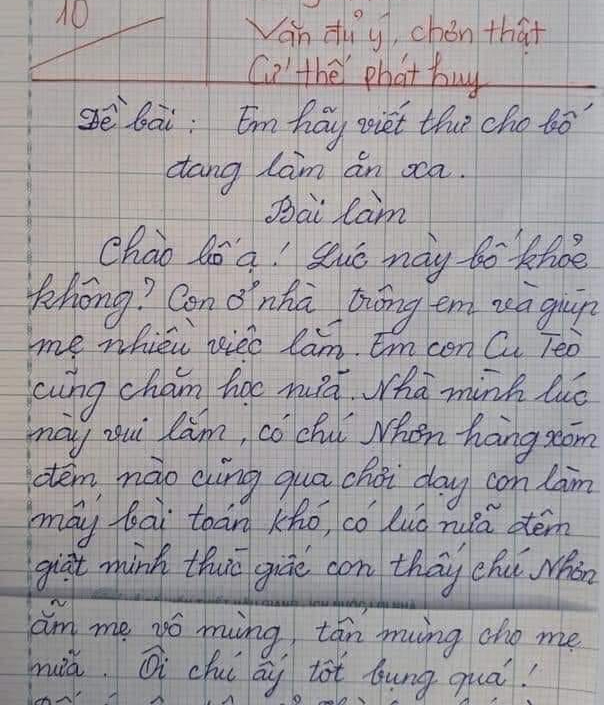 10
Văn đủ ý, chân thật
Cứ thế phát huy
Đề bài: Em hãy viết thư cho bố
đang làm ăn xa.
Bài làm
Chào bố ạ! Lúc này bố khỏe
không? Con ở nhà trông em và giúp
mẹ nhiều việc lắm. Em con Cu Tèo
cũng chăm học nữa. Nhà mình lúc
này vui lắm, có chú Nhơn hàng xóm
đêm nào cũng qua chơi dạy con làm
mấy bài toán khó, có lúc nửa đêm
giật mình thức giấc con thấy chú Nhơn
ẵm mẹ vô mùng, tấn mùng cho mẹ
nữa. Ôi chú ấy tốt bụng quá!